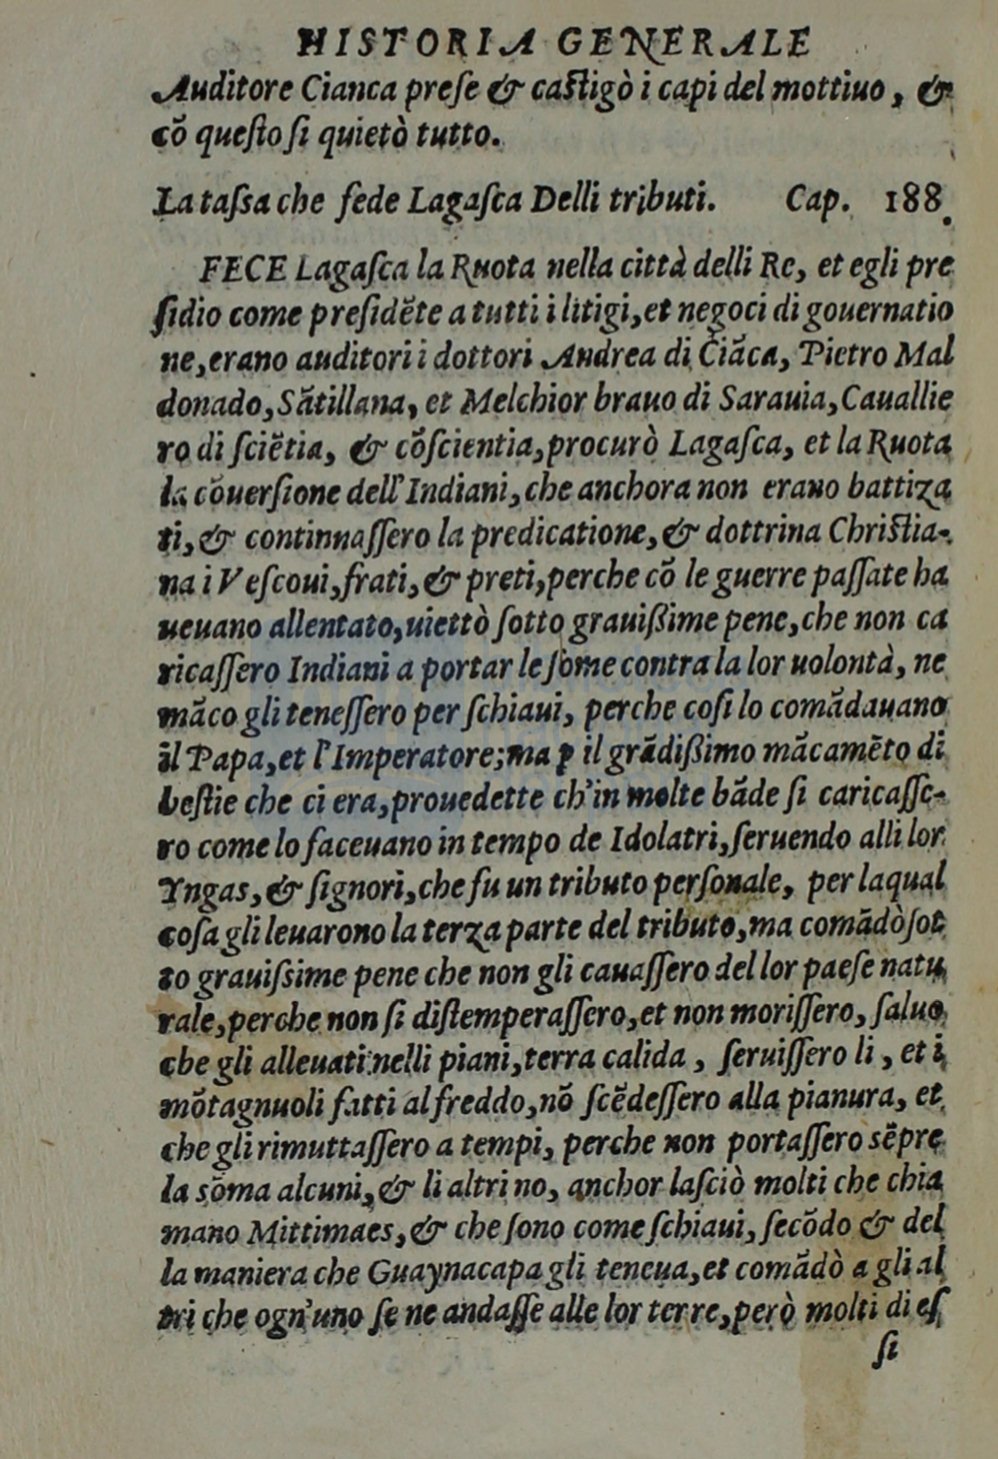 HISTORIA GENERALE
Auditore Cianca preſe & caſtigò i capi del mottiuo, &
cō queſto ſi quietò tutto.
La taſsa che fede Lagaſca Delli tributi. Cap. 188.
FECE Lagaſca la Ruota nella città delli Re, et egli pre
ſidio come preſidēte a tutti i litigi, et negoci di gouernatio
ne, erano auditori i dottori Andrea di Ciāca, Pietro Mal
donado, Sātillana, et Melchior brauo di Sarauia, Cauallie
ro di ſciētia, & cōſcientia, procurò Lagaſca, et la Ruota
la cōuerſione dell'Indiani, che anchora non erano battiza
ti, & continuaſſero la predicatione, & dottrina Chriſtia-
na i Veſcoui, frati, & preti, perche cō le guerre paſſate ha
ueuano allentato, uiettò ſotto grauißime pene, che non ca
ricaſſero Indiani a portar le ſome contra la lor uolontà, ne
māco gli teneſſero per ſchiaui, perche coſi lo comādauano
il Papa, et l'Imperatore; ma ꝑ il grādißimo mācamēto di
beſtie che ci era, prouedette ch'in molte bāde ſi caricaſſe-
ro come lo faceuano in tempo de Idolatri, ſeruendo alli lor
Yngas, & ſignori, che fu un tributo perſonale, per laqual
coſa gli leuarono la terza parte del tributo, ma comādò ſot
to grauiſsime pene che non gli cauaſſero del lor paeſe natu
rale, perche non ſi diſtemperaſſero, et non moriſſero, ſaluo
che gli alleuati nelli piani, terra calida, ſeruiſſero li, et i
mōtagnuoli fatti al freddo, nō ſcēdeſſero alla pianura, et
che gli rimuttaſſero a tempi, perche non portaſſero sēpre
la sōma alcuni, & li altri no, anchor laſciò molti che chia
mano Mittimaes, & che ſono come ſchiaui, ſecōdo & del
la maniera che Guaynacapa gli teneua, et comādò a gli al
tri che ogn'uno ſe ne andaſſe alle lor terre, però molti di eſ
ſi